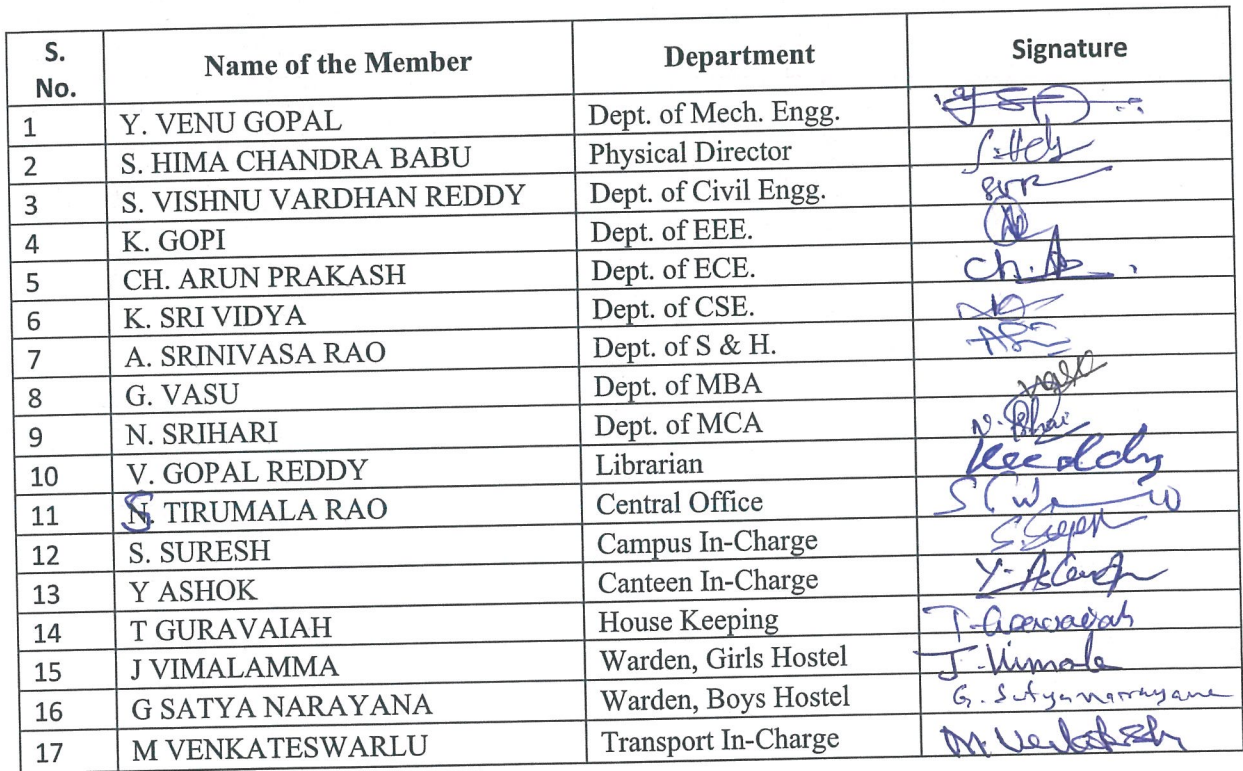 S. No. Name of the Member Department Signature
1 Y. VENU GOPAL Dept. of Mech. Engg.
2 S. HIMA CHANDRA BABU Physical Director
3 S. VISHNU VARDHAN REDDY Dept. of Civil Engg. SVR
4 K. GOPI Dept. of EEE.
5 CH. ARUN PRAKASH Dept. of ECE. Ch.
6 K. SRI VIDYA Dept. of CSE.
7 A. SRINIVASA RAO Dept. of S & H.
8 G. VASU Dept. of MBA
9 N. SRIHARI Dept. of MCA
10 V. GOPAL REDDY Librarian
11 S. TIRUMALA RAO Central Office
12 S. SURESH Campus In-Charge
13 Y ASHOK Canteen In-Charge
14 T GURAVAIAH House Keeping
15 J VIMALAMMA Warden, Girls Hostel J. Vimala
16 G SATYA NARAYANA Warden, Boys Hostel G. Satyanarayana
17 M VENKATESWARLU Transport In-Charge